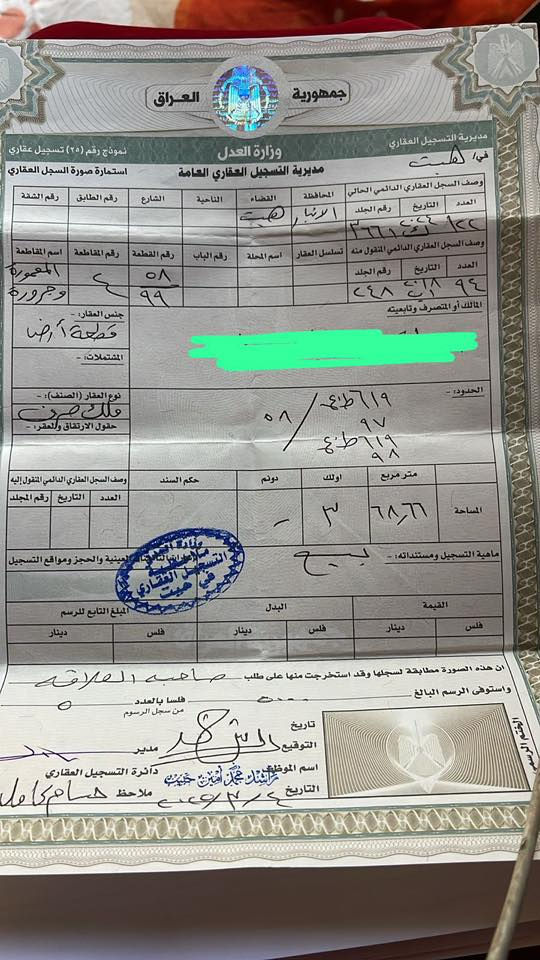 جمهورية العراق
مديرية التسجيل العقاري
في/ هيت
وزارة العدل
مديرية التسجيل العقاري العامة
نموذج رقم (٢٥) تسجيل عقاري
استمارة صورة السجل العقاري
وصف السجل العقاري الدائمي الحالي المحافظة القضاء الناحية الشارع رقم الطابق رقم الشقة
العدد التاريخ رقم الجلد الانبار هيت
وصف السجل العقاري الدائمي المنقول منه تسلسل العقار اسم المحلة رقم الباب رقم القطعة رقم المقاطعة اسم المقاطعة
العدد التاريخ رقم الجلد ٥٨ ٤ المعمورة
٩٤ ٢٤٨ ٩٩ وجرورة
المالك أو المتصرف وتابعيته جنس العقار :-
قطعة أرض
المشتملات :-
الحدود:- نوع العقار (الصنف):-
٥٨/ ٩٧ ملك صرف
٩٨ حقوق الارتفاق والعقر:-
المساحة متر مربع اولك دونم حكم السند وصف السجل العقاري الدائمي المنقول إليه
٦٨,٦٦ ٣ - العدد التاريخ رقم المجلد
ماهية التسجيل ومستنداته :- بيع
وزارة العدل
التسجيل العقاري
في هيت
القيمة البدل المبلغ التابع للرسم
فلس دينار فلس دينار فلس دينار
ان هذه الصورة مطابقة لسجلها وقد استخرجت منها على طلب صاحبة العلاقة
واستوفى الرسم البالغ ٥٠٠٠ فلسا بالعدد ٥
من سجل الرسوم
تاريخ
التوقيع مدير
اسم الموظف راشد محمد امين حبيب دائرة التسجيل العقاري
التاريخ ٢٠٢٤/٣/٤ ملاحظ حسام كامل
الختم الرسمي